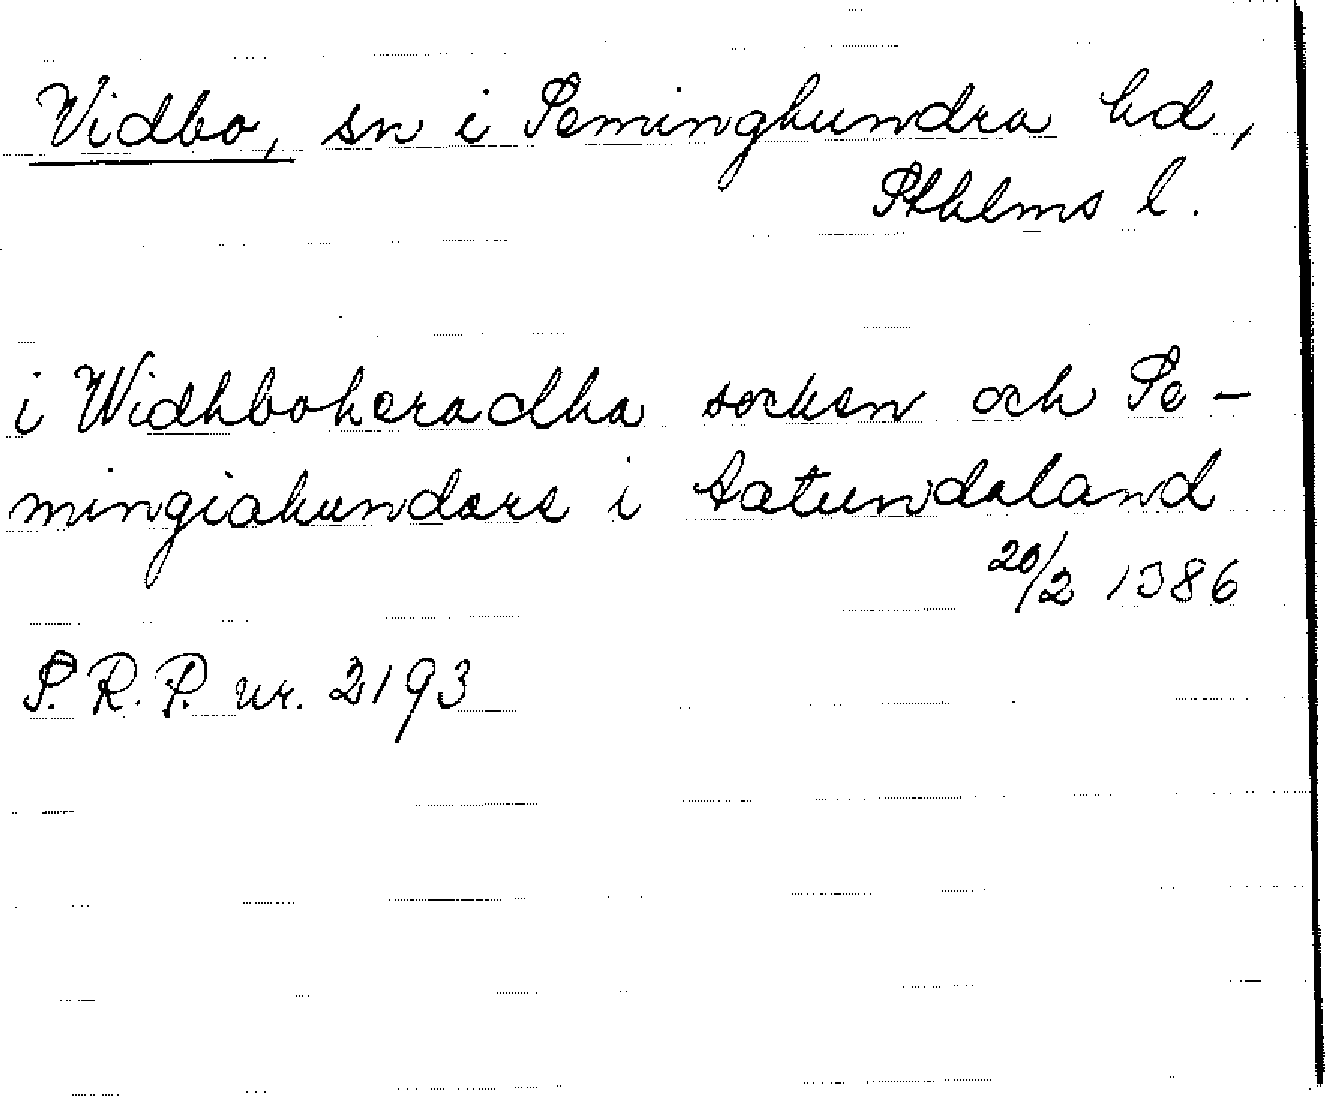 Vidbo, sn i Seminghundra hd,
Sthlms l.
i Widhboheradha socken och Se-
mingiahundare i Aatundaland
20/2 1386
S.R.P. nr. 2193